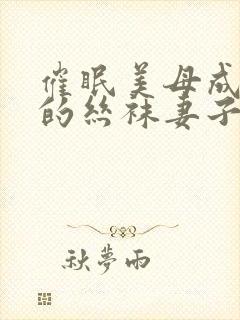 催眠美母成
的丝袜妻子
秋夢雨